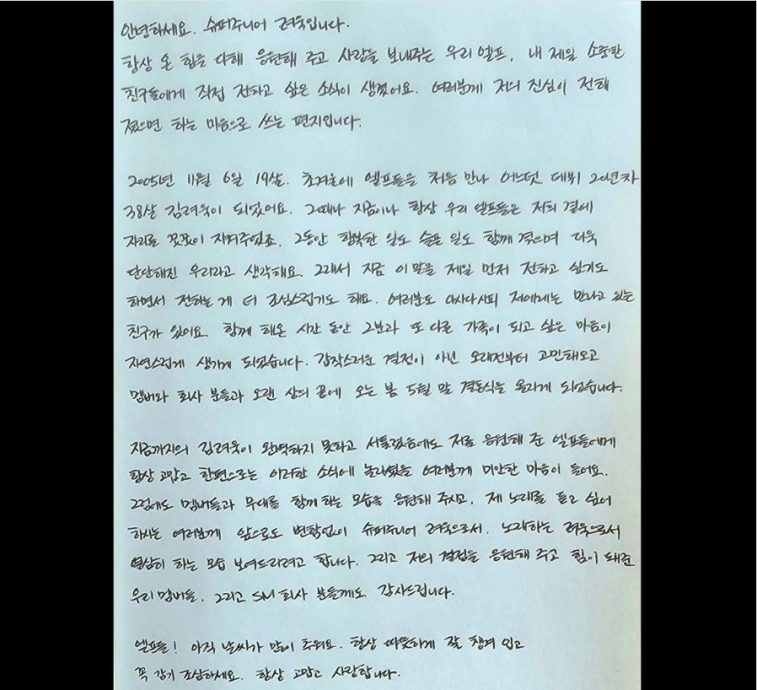 안녕하세요. 슈퍼주니어 려욱입니다.
항상 온 힘을 다해 응원해 주고 사랑을 보내주는 우리 엘프, 내 제일 소중한
친구들에게 직접 전하고 싶은 소식이 생겼어요. 여러분께 저의 진심이 전해
졌으면 하는 마음으로 쓰는 편지입니다.
2005년 11월 6일 19살. 초겨울에 엘프들을 처음 만나 어느덧 데뷔 20년차
38살 김려욱이 되었어요. 그때나 지금이나 항상 우리 엘프들은 저의 곁에
자리를 꿋꿋이 지켜주었죠. 그동안 행복한 일도 슬픈 일도 함께 겪으며 더욱
단단해진 우리라고 생각해요. 그래서 지금 이 말을 제일 먼저 전하고 싶기도
하면서 전하는 게 더 조심스럽기도 해요. 여러분도 아시다시피 저에게는 만나고 있는
친구가 있어요. 함께 해온 시간 동안 그분과 또 다른 가족이 되고 싶은 마음이
자연스럽게 생기게 되었습니다. 갑작스러운 결정이 아닌 오래전부터 고민해오고
멤버와 회사 분들과 오랜 상의 끝에 오는 봄 5월 말 결혼식을 올리게 되었습니다.
지금까지의 김려욱이 완벽하지 못하고 서툴렀음에도 저를 응원해 준 엘프들에게
항상 고맙고 한편으로는 이러한 소식에 놀라셨을 여러분께 미안한 마음이 들어요.
그럼에도 멤버들과 무대를 함께 하는 모습을 응원해 주시고, 제 노래를 듣고 싶어
하시는 여러분께 앞으로도 변함없이 슈퍼주니어 려욱으로서, 노래하는 려욱으로서
열심히 하는 모습 보여드리려고 합니다. 그리고 저의 결정을 응원해 주고 힘이 돼준
우리 멤버들, 그리고 SM 회사 분들께도 감사드립니다.
엘프들! 아직 날씨가 많이 추워요. 항상 따뜻하게 잘 챙겨 입고
꼭 감기 조심하세요. 항상 고맙고 사랑합니다.